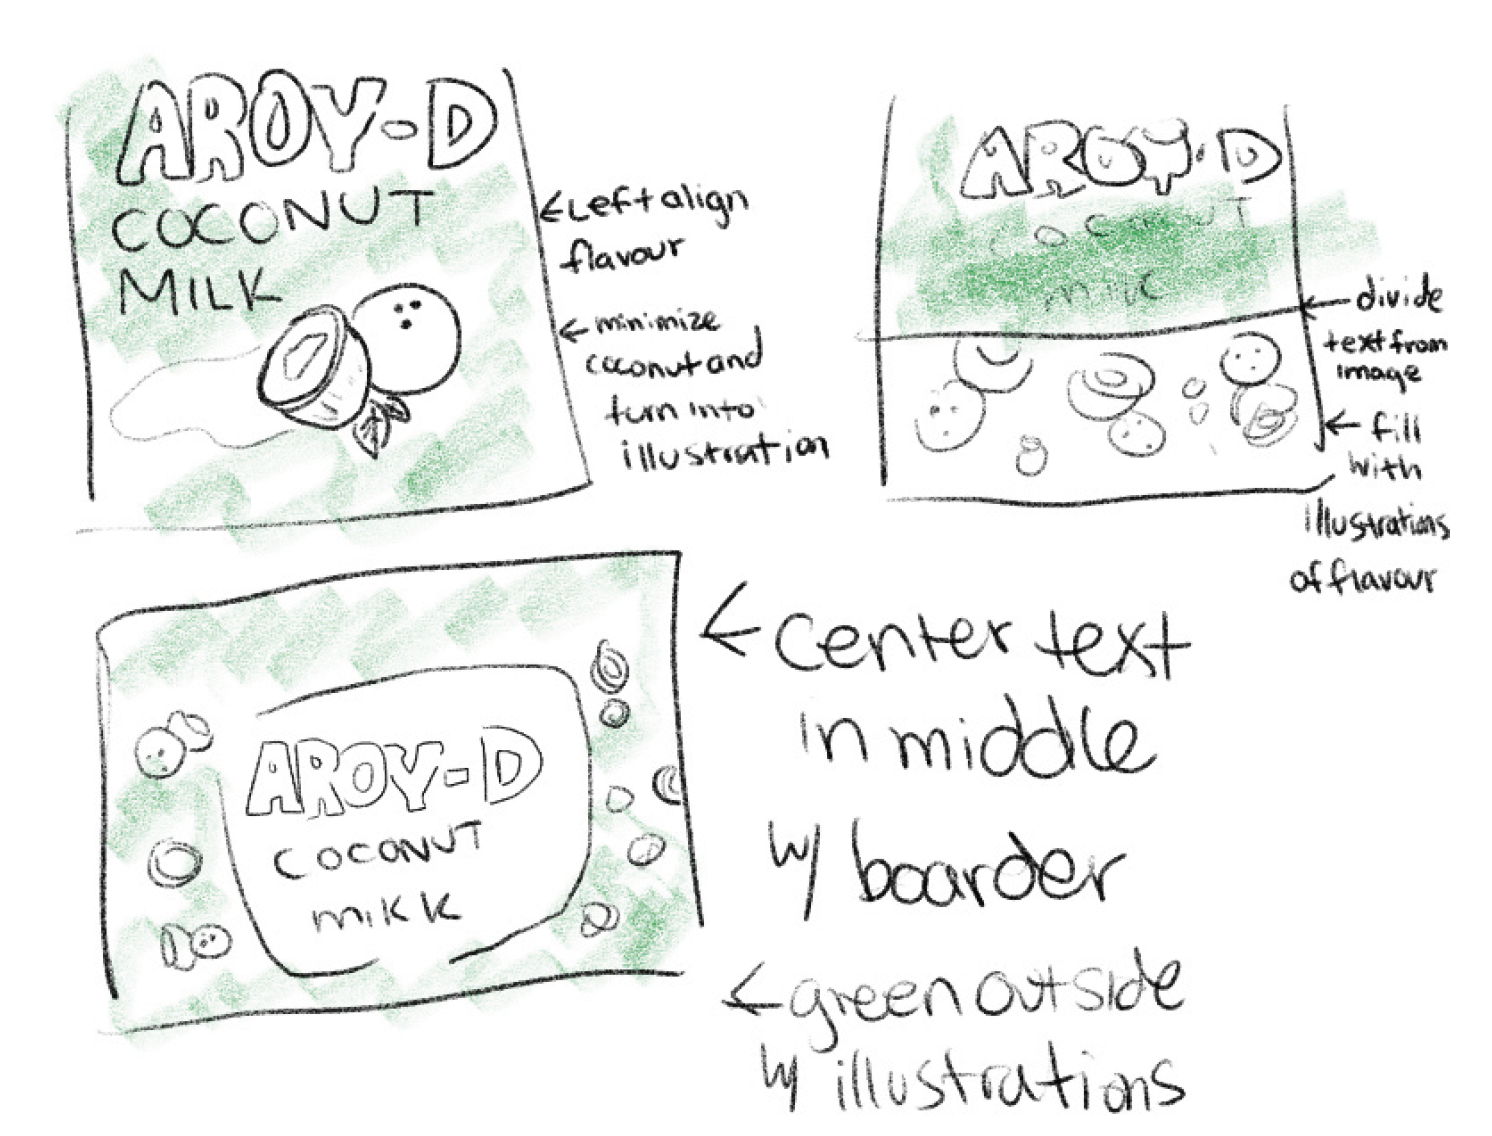 AROY-D
COCONUT
MILK
←Left align
flavour
← minimize
coconut and
turn into
illustration
AROY-D
COCONUT
milk
← divide
text from
image
← fill
with
illustrations
of flavour
AROY-D
COCONUT
miKK
← center text
in middle
w/ boarder
← green outside
w/ illustrations